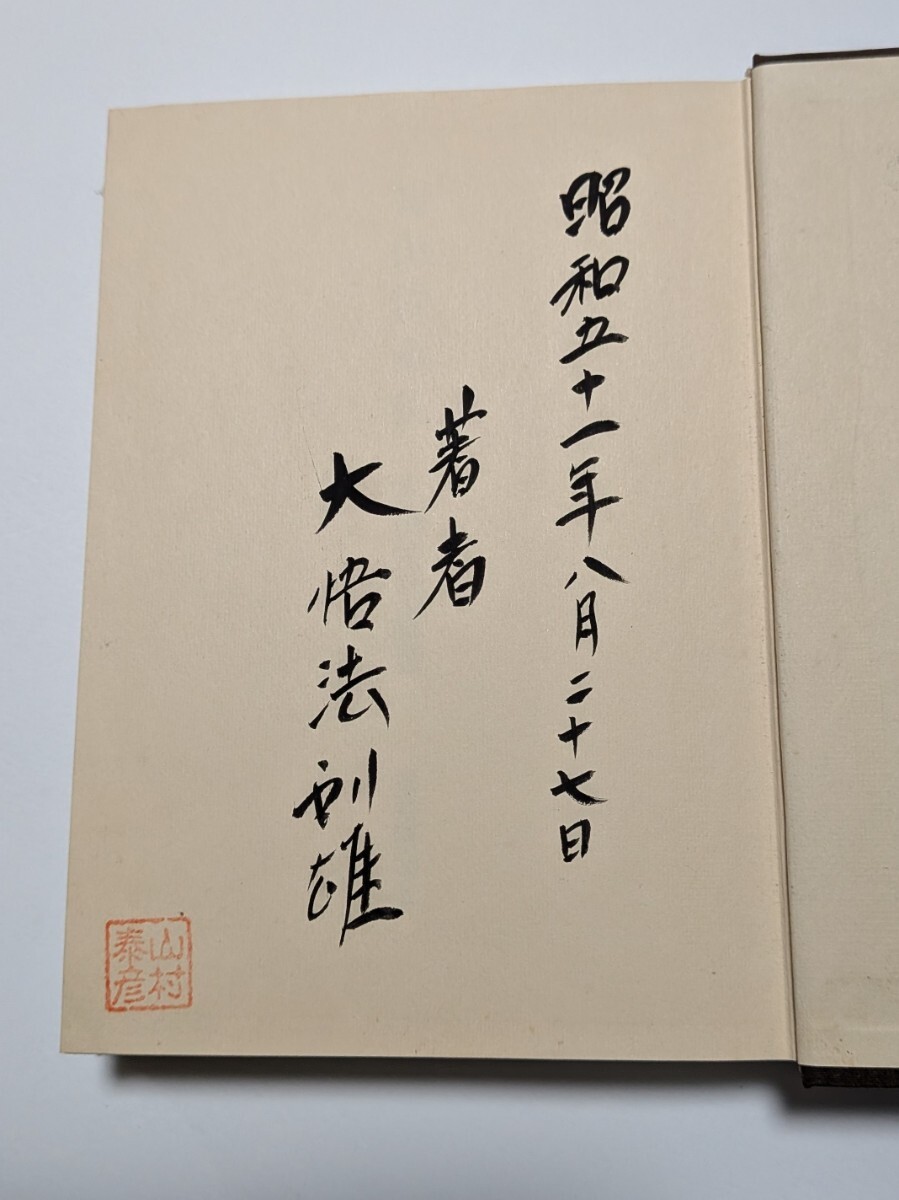 昭和五十一年八月二十七日
著者
大悟法利雄
山村
泰彦